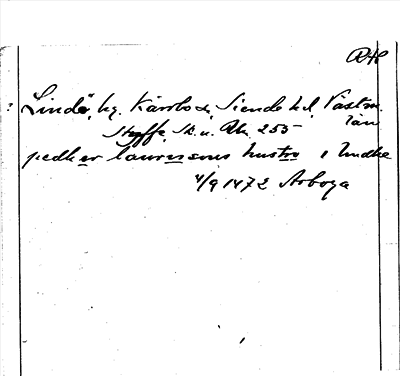 RAp
: Lindö, hg. Kärrbo sn, Siende hd, Västm.
län
Styffe, Sk. u. Un. 255
pedher laurissons hustrv i lindhe
4/9 1472 Arboga